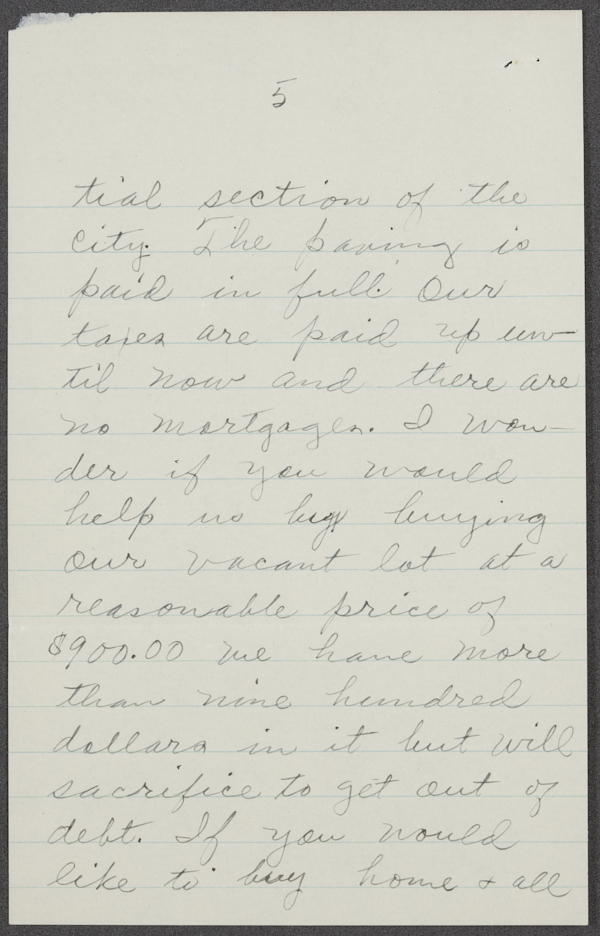 5
tial section of the
city. The paving is
paid in full. Our
taxes are paid up un-
til now and there are
no mortgages. I won-
der if you would
help us by buying
our vacant lot at a
reasonable price of
$900.00 we have more
than nine hundred
dollars in it but will
sacrifice to get out of
debt. If you would
like to buy home & all